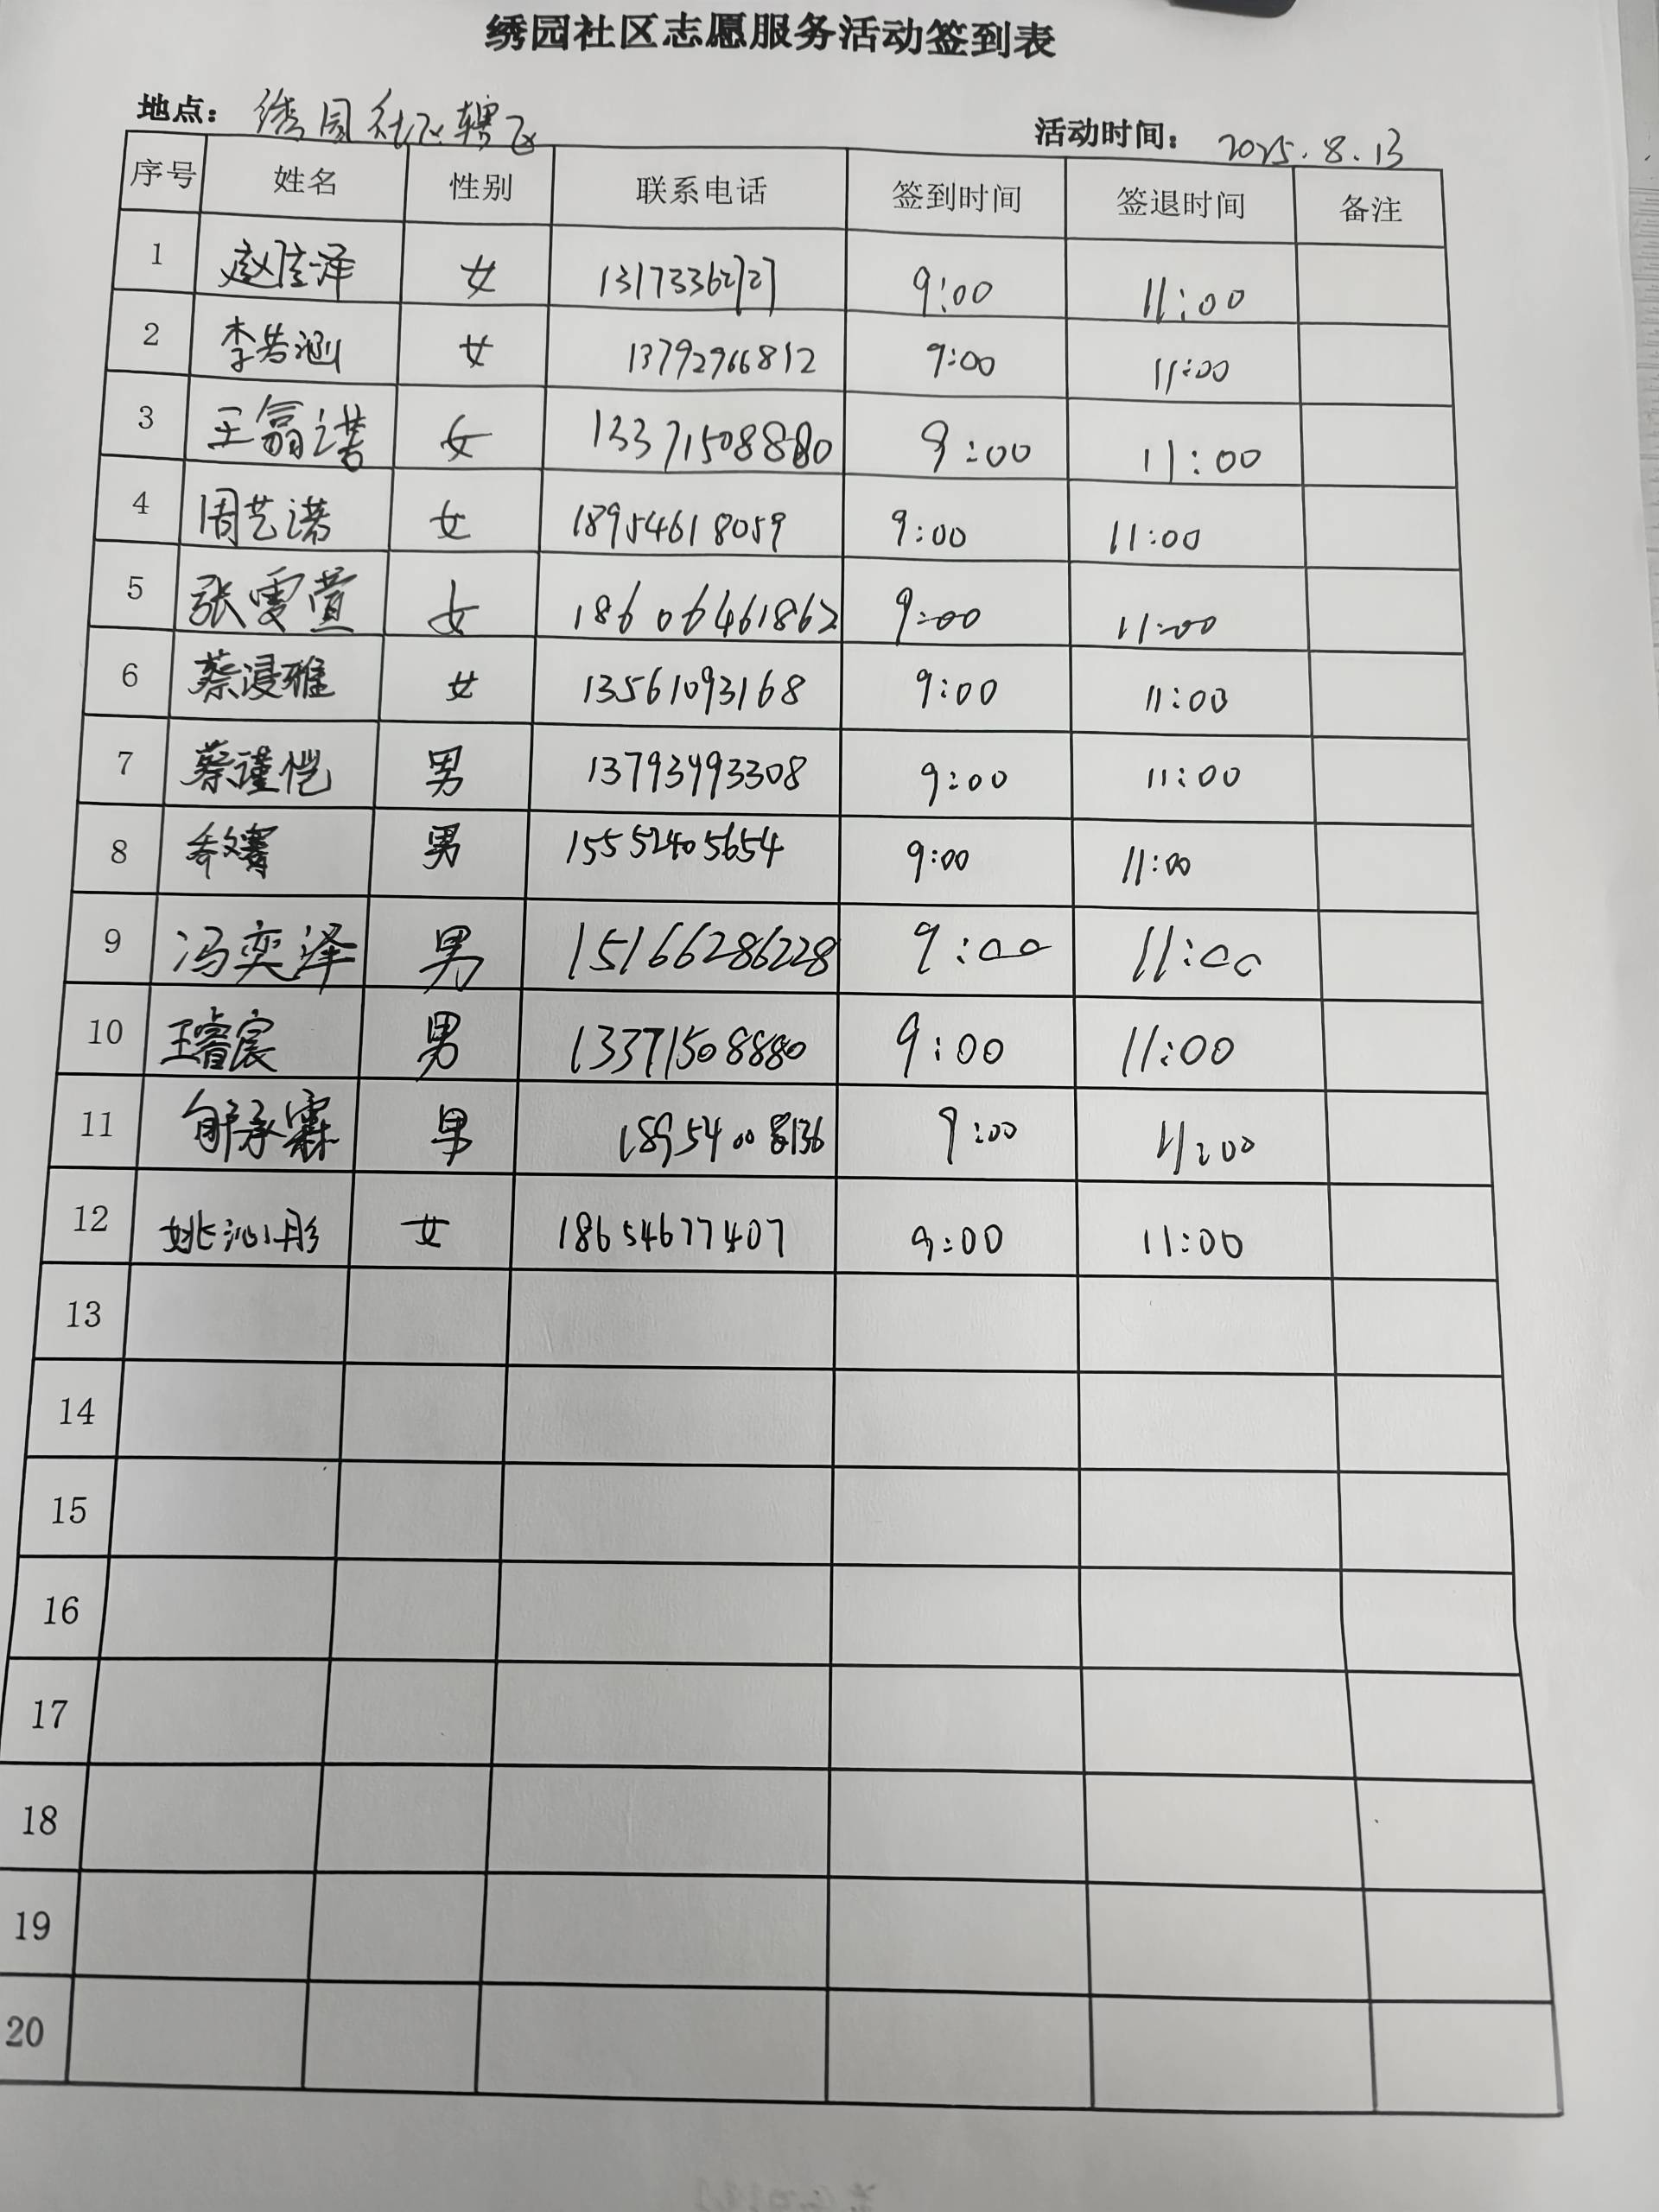 绣园社区志愿服务活动签到表
地点：绣园社区辖区 活动时间：2025.8.13
序号 姓名 性别 联系电话 签到时间 签退时间 备注
1 赵佳泽 女 13173362727 9:00 11:00
2 李若涵 女 13792966812 9:00 11:00
3 王翕诺 女 13371508880 9:00 11:00
4 周艺诺 女 18954618059 9:00 11:00
5 张雯萱 女 18606461862 9:00 11:00
6 蔡浸雅 女 13561093168 9:00 11:00
7 蔡谨恺 男 13793493308 9:00 11:00
8 男 15552405654 9:00 11:00
9 冯奕泽 男 15166286228 9:00 11:00
10 王睿宸 男 13371508880 9:00 11:00
11 男 18954008136 9:00 11:00
12 姚沁彤 女 18654677407 9:00 11:00
13
14
15
16
17
18
19
20